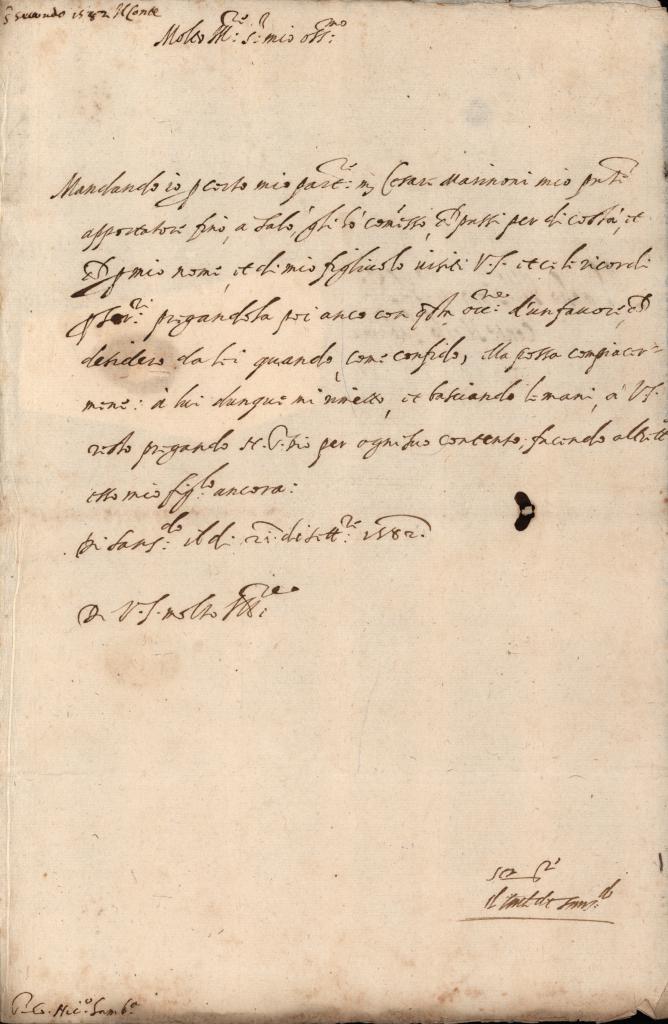 S Secondo 1582 Il Conte
Molto Ill.re S.r mio oss.mo
Mandando io p certo mio part.re m Cesare Marinoni mio pnte
apportatore fino a Salò, gli hò comesso, che passi per di costà, et
che p mio nome, et di mio figliuolo visiti V.S. et ce le ricordi
p Ser.ri pregandola poi anco con qsta occ.ne d'un favore, che
desidero da lei quando, come confido, ella possa compiacer=
mene: à lui dunque mi rimetto, et basciando le mani à V.S.
resto pregando N.S. Dio per ogni suo contento, facendo al
esso mio figl.lo ancora:
Di San S.do il di 21 di sett.re 1582.
Di V.S. molto Ill.re
il de San S.do
S.r C. Nic.o Gamb.a